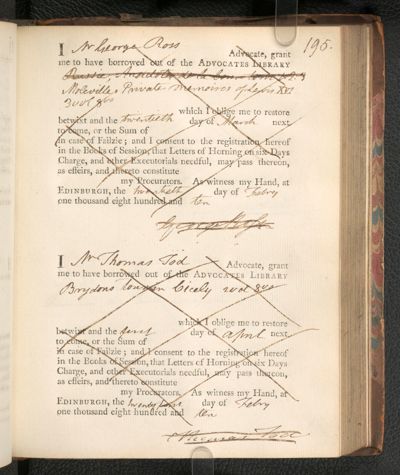 195.
I Mr George Ross Advocate, grant
me to have borrowed out of the ADVOCATES LIBRARY
Molevilles Private Memoires of Lewis XVI
3 vol 8vo
which I oblige me to restore
betwixt and the twentieth day of March next
to come, or the Sum of
in case of Failzie; and I consent to the registration hereof
in the Books of Session, that Letters of Horning on six Days
Charge, and other Executorials needful, may pass thereon,
as effeirs, and thereto constitute
my Procurators. As witness my Hand, at
EDINBURGH, the twentieth day of Febry
one thousand eight hundred and ten
George Ross
I Mr Thomas Tod Advocate, grant
me to have borrowed out of the ADVOCATES LIBRARY
Brydons tour in Cicely 2 vol 8vo
which I oblige me to restore
betwixt and the first day of April next
to come, or the Sum of
in case of Failzie; and I consent to the registration hereof
in the Books of Session, that Letters of Horning on six Days
Charge, and other Executorials needful, may pass thereon,
as effeirs, and thereto constitute
my Procurators. As witness my Hand, at
EDINBURGH, the day of Febry
one thousand eight hundred and ten
Thomas Tod